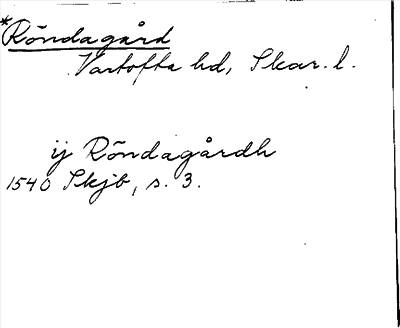 *Röndagård
Vartofta hd, Skar. l.
ij Röndagårdh
1540 Skjb, s. 3.